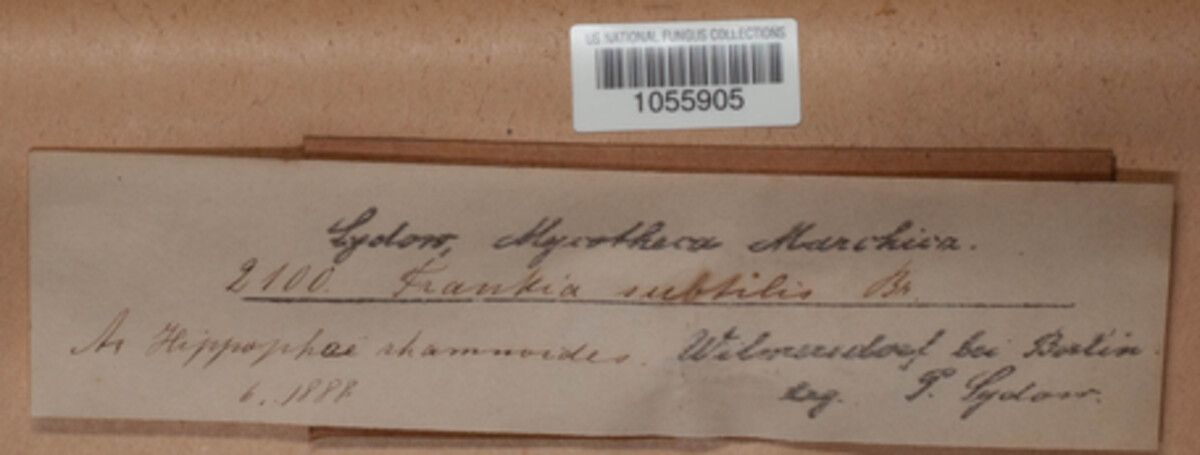 US NATIONAL FUNGUS COLLECTIONS
1055905
Sydow, Mycotheca Marchica.
2100. Frankia subtilis Br.
An Hippophaë rhamnoides. Wilmersdorf bei Berlin.
6. 1888. leg. P. Sydow.